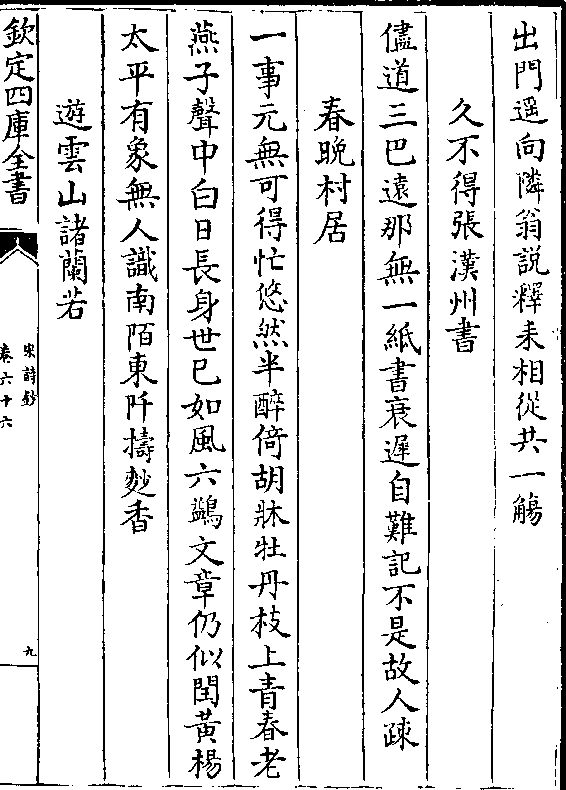 出門遥向隣翁説釋耒相從共一觴
久不得張漢州書
儘道三巴遠那無一紙書衰遲自難記不是故人疎
春晩村居
一事元無可得忙悠然半醉倚胡牀牡丹枝上青春老
燕子聲中白日長身世已如風六鷁文章仍似閏黃楊
太平有象無人識南陌東阡擣麨香
遊雲山諸蘭若
欽定四庫全書
宋詩鈔
卷六十六
九